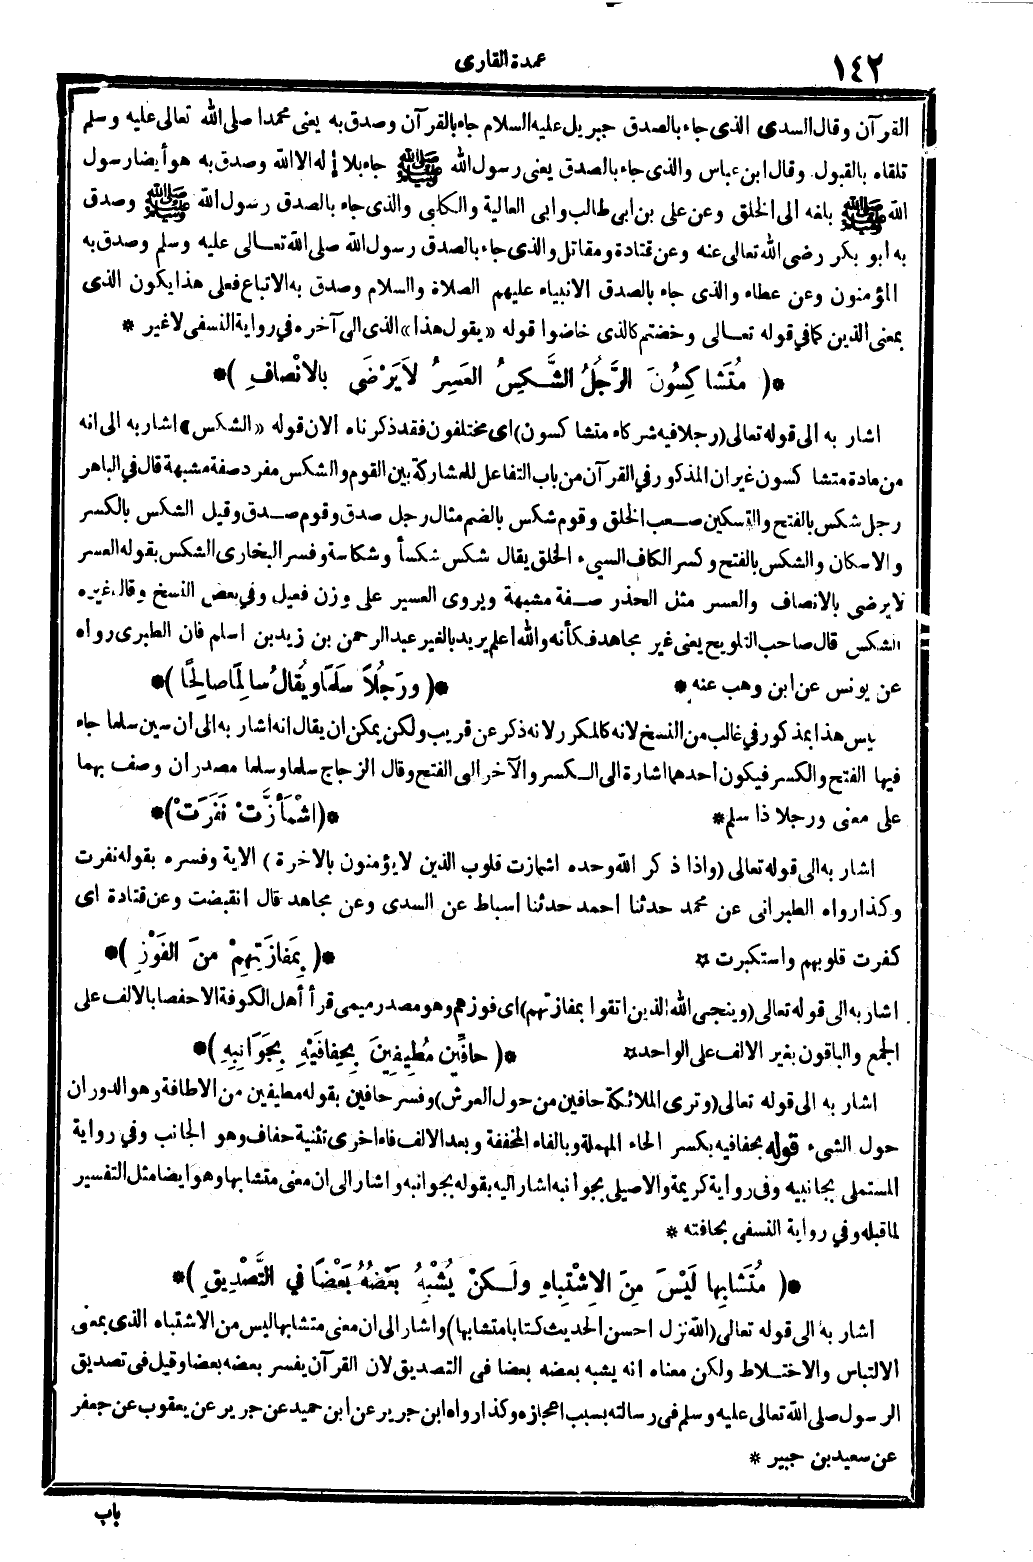 ١٤٢
عمدة القارى
القرآن وقال السدى الذى جاء بالصدق جبريل عليه السلام جاء بالقرآن وصدق به يعنى محمدا صلى الله تعالى عليه وسلم
تلقاه بالقبول. وقال ابن عباس والذى جاء بالصدق يعنى رسول الله ﷺ جاء بلا إله الا الله وصدق به هو أيضا رسول
الله ﷺ بلغه الى الخلق وعن على بن ابى طالب وابى العالية والكلبى والذى جاء بالصدق رسول الله ﷺ وصدق
به أبو بكر رضى الله تعالى عنه وعن قتادة ومقاتل والذى جاء بالصدق رسول الله صلى الله تعالى عليه وسلم وصدق به
المؤمنون وعن عطاء والذى جاء بالصدق الانبياء عليهم الصلاة والسلام وصدق به الاتباع فعلى هذا يكون الذى
بمعنى الذين كما في قوله تعالى وخضتم كالذى خاضوا قوله «يقول هذا» الذى الى آخره فى رواية النسفى لاغير *
*( مُتَشَاكِسُونَ الرَّجُلُ الشَّكِسُ العَسِرُ لاَ يَرْضَى بالاِنْصَافِ )*
اشار به الى قوله تعالى (رجلا فيه شركاء متشاكسون) اى مختلفون فقد ذكرناه الان قوله «الشكس» اشار به الى انه
من مادة متشاكسون غير ان المذكور في القرآن من باب التفاعل للمشاركة بين القوم والشكس مفرد صفة مشبهة قال في الباهر
رجل شكس بالفتح والتسكين صعب الخلق وقوم شكس بالضم مثال رجل صدق وقوم صدق وقيل الشكس بالكسر
والاسكان والشكس بالفتح وكسر الكاف السيىء الخلق يقال شكس شكسا وشكاسة وفسر البخارى الشكس بقوله العسر
لا يرضى بالانصاف والعسر مثل الحذر صفة مشبهة ويروى العسير على وزن فعيل وفي بعض النسخ وقال غيره
الشكس قال صاحب التلويح يعنى غير مجاهد فكأنه والله أعلم يريد بالغير عبد الرحمن بن زيد بن اسلم فان الطبرى رواه
عن يونس عن ابن وهب عنه * *( ورَجُلاً سَلَمًا ويُقَالُ سالِمًا صَالِحًا )*
ليس هذا بمذكور في غالب من النسخ لانه كالمكرر لانه ذكر عن قريب ولكن يمكن ان يقال انه اشار به الى ان سين سلما جاء
فيها الفتح والكسر فيكون أحدهما اشارة الى الكسر والآخر الى الفتح وقال الزجاج سلما وسلما مصدر ان وصف بهما
على معنى ورجلا ذا سلم * *( اشْمَأَزَّتْ نَفَرَتْ )*
اشار به الى قوله تعالى (واذا ذكر الله وحده اشمازت قلوب الذين لا يؤمنون بالاخرة) الاية وفسره بقوله نفرت
وكذا رواه الطبرانى عن محمد حدثنا احمد حدثنا أسباط عن السدى وعن مجاهد قال انقبضت وعن قتادة اى
كفرت قلوبهم واستكبرت * *( بِمَفازَتِهِمْ مِنَ الفَوْزِ )*
اشار به الى قوله تعالى (وينجى الله الذين اتقوا بمفازتهم) اى فوزهم وهو مصدر ميمى قرأ أهل الكوفة الا حفصا بالالف على
الجمع والباقون بغير الالف على الواحد * *( حافِّينَ مُطِيفِينَ بِحِفافَيْهِ بِجَوَانِبِهِ )*
اشار به الى قوله تعالى (وترى الملائكة حافين من حول العرش) وفسر حافين بقوله مطيفين من الاطافة وهو الدوران
حول الشىء قوله بحفافيه بكسر الحاء المهملة وبالفاء المخففة وبعد الالف فاء اخرى تثنية حفاف وهو الجانب وفي رواية
المستملى بجانبيه وفى رواية كريمة والاصيلى بجوانبه اشار اليه بقوله بجوانبه واشار الى ان معنى متشابها وهو ايضا مثل التفسير
لما قبله وفي رواية النسفى بحافته *
*( مُتَشابِهًا لَيْسَ مِنَ الاِشْتِباهِ ولَكِنْ يُشْبِهُ بَعْضُهُ بَعْضًا في التَّصْدِيقِ )*
اشار به الى قوله تعالى (الله نزل احسن الحديث كتابا متشابها) واشار الى ان معنى متشابها ليس من الاشتباه الذى بمعنى
الالتباس والاختلاط ولكن معناه انه يشبه بعضه بعضا فى التصديق لان القرآن يفسر بعضه بعضا وقيل فى تصديق
الرسول صلى الله تعالى عليه وسلم فى رسالته بسبب اعجازه وكذا رواه ابن جرير عن ابن حميد عن جرير عن يعقوب عن جعفر
عن سعيد بن جبير *
باب